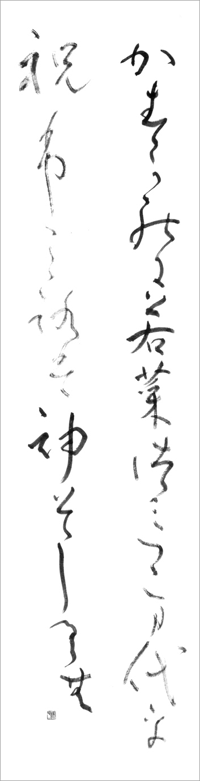 かすか野に若菜つみつゝ万代を
祝ふこゝろは神そしるらむ